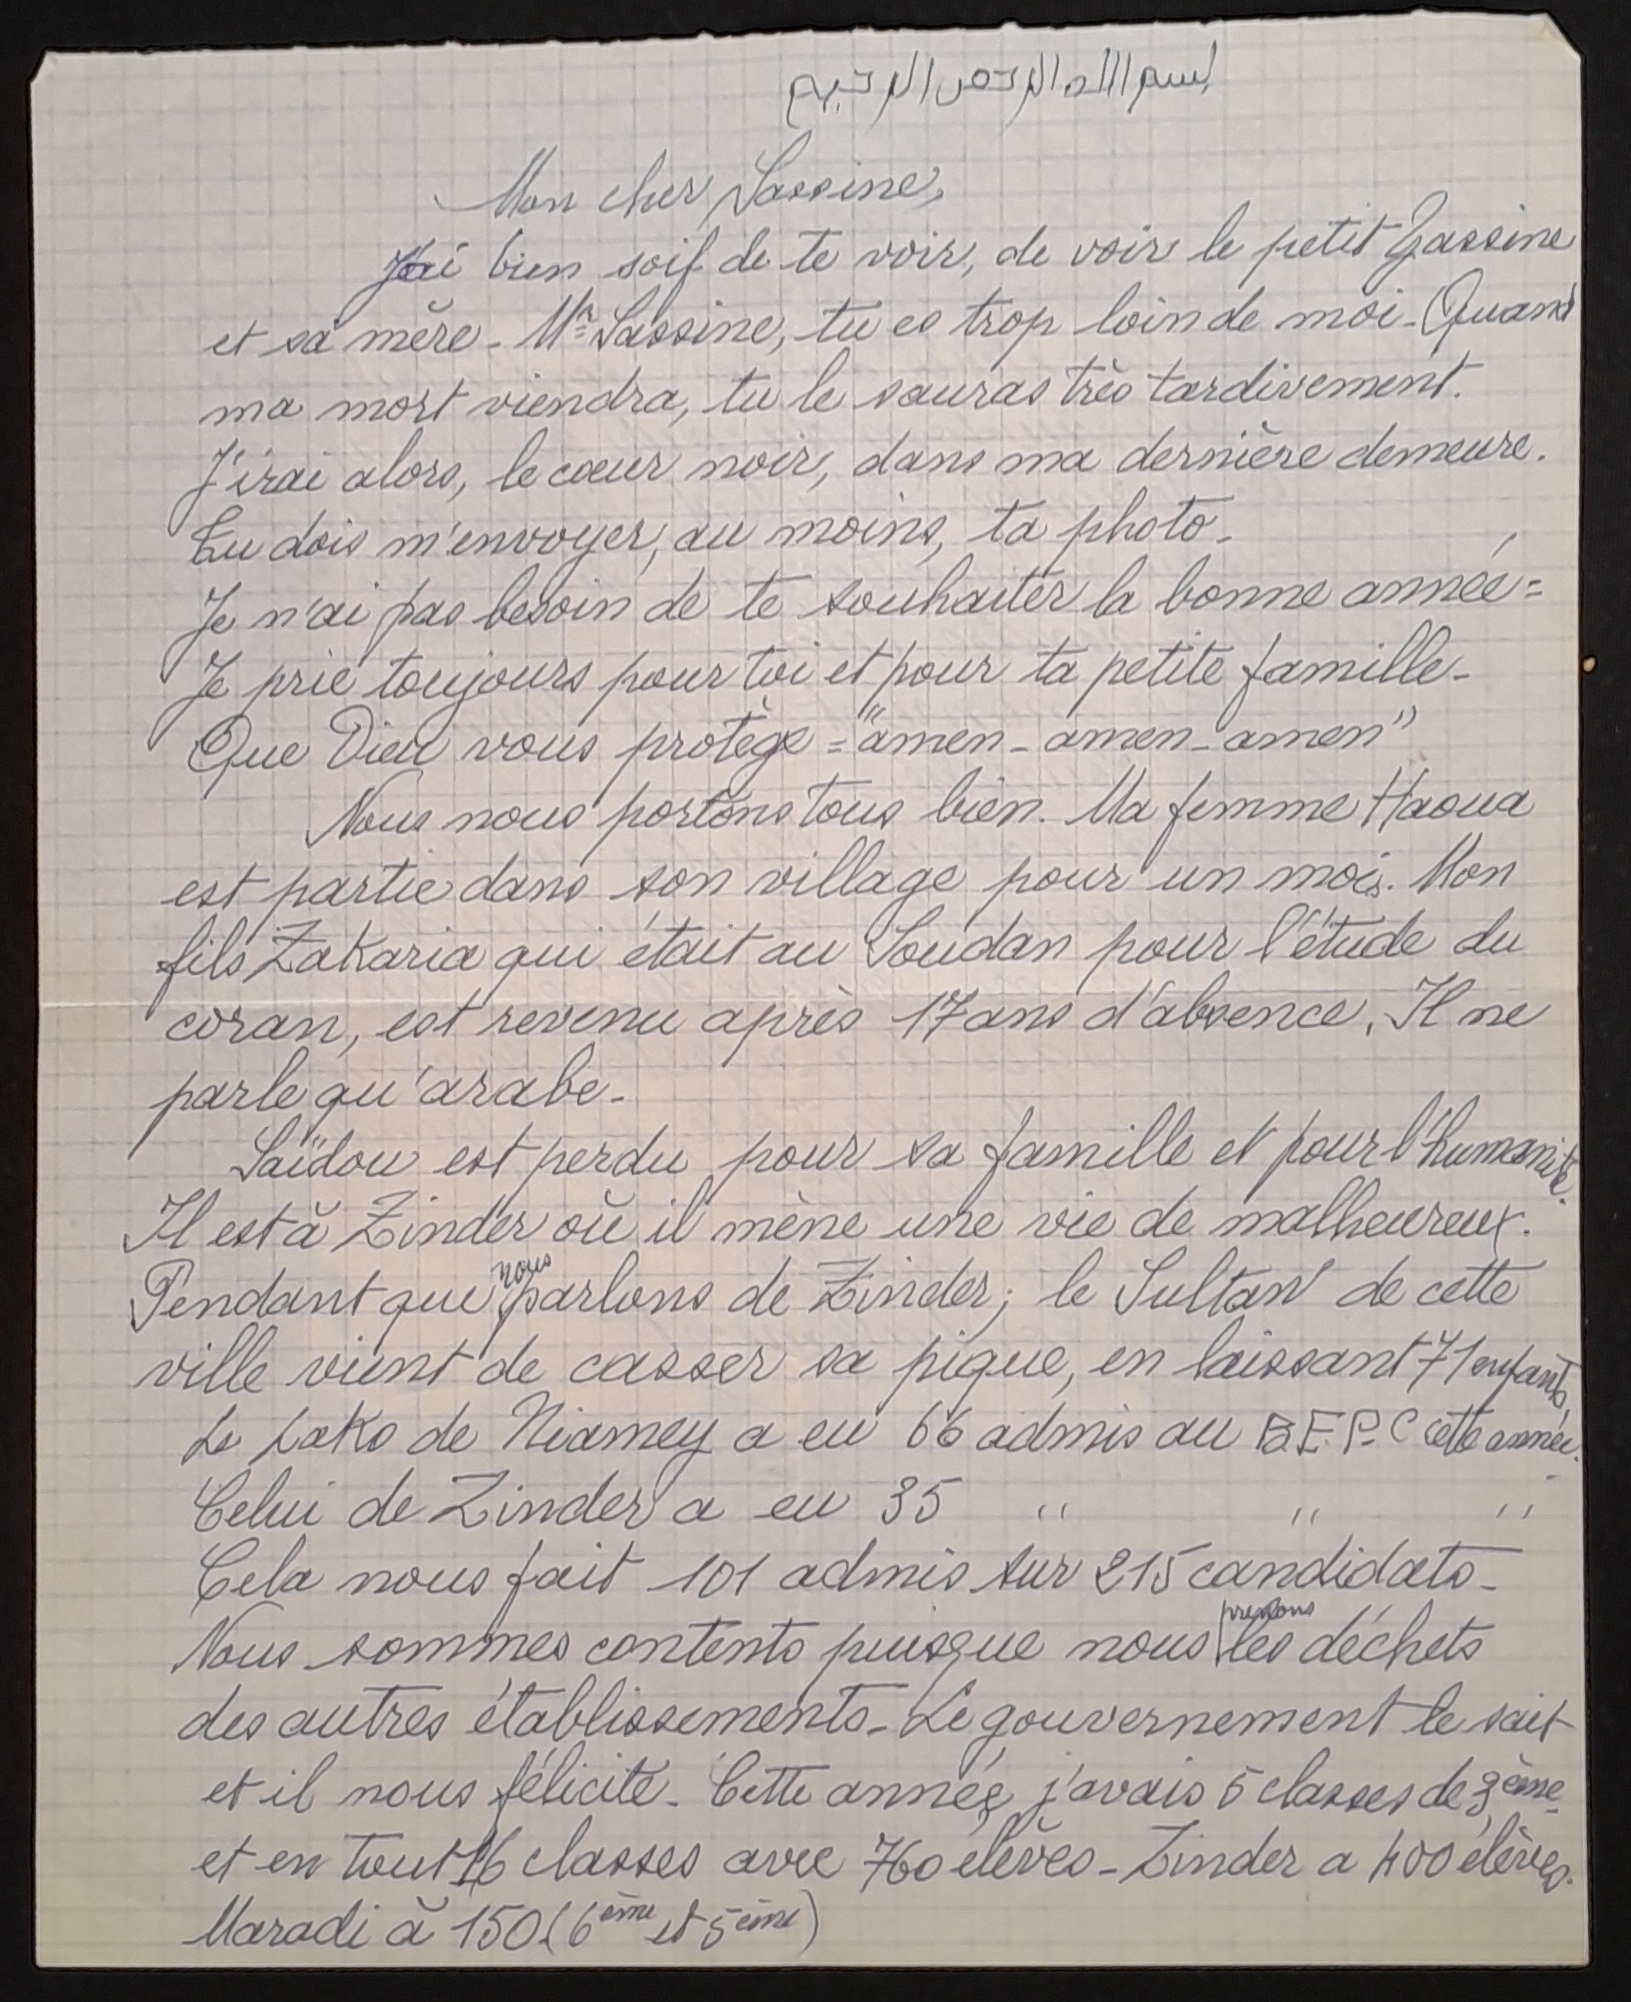 بسم الله الرحمن الرحيم
Mon cher Sassine,
J'ai bien soif de te voir, de voir le petit Yassine
et sa mère - Mr Sassine, tu es trop loin de moi - Quand
ma mort viendra, tu le sauras très tardivement.
J'irai alors, le cœur noir, dans ma dernière demeure.
Tu dois m'envoyer, au moins, ta photo -
Je n'ai pas besoin de te souhaiter la bonne année =
Je prie toujours pour toi et pour ta petite famille -
Que Dieu vous protège = "amen - amen - amen"
Nous nous portons tous bien. Ma femme Haoua
est partie dans son village pour un mois. Mon
fils Zakaria qui était au Soudan pour l'étude du
coran, est revenu après 17 ans d'absence. Il ne
parle qu'arabe -
Saïdou est perdu pour sa famille et pour l'humanité.
Il est à Zinder où il mène une vie de malheureux.
Pendant que nous parlons de Zinder; le Sultan de cette
ville vient de casser sa pique, en laissant 71 enfants,
Le Lako de Niamey a eu 66 admis au B.E.P.C cette année.
Celui de Zinder a eu 35 " " "
Cela nous fait 101 admis sur 215 candidats -
Nous sommes contents puisque nous prenons les déchets
des autres établissements - Le gouvernement le sait
et il nous félicite - Cette année, j'avais 5 classes de 3ème
et en tout 16 classes avec 760 élèves - Zinder a 400 élèves.
Maradi à 150 (6ème et 5ème)